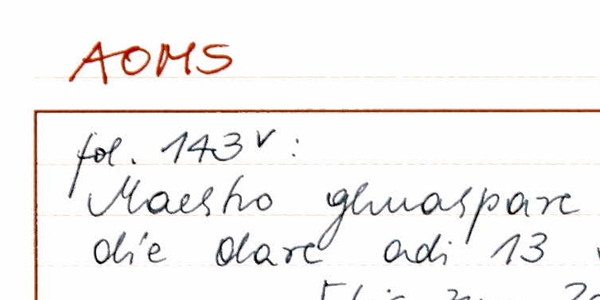 AOMS
fol. 143v:
Maestro ghuaspare
die dare adi 13